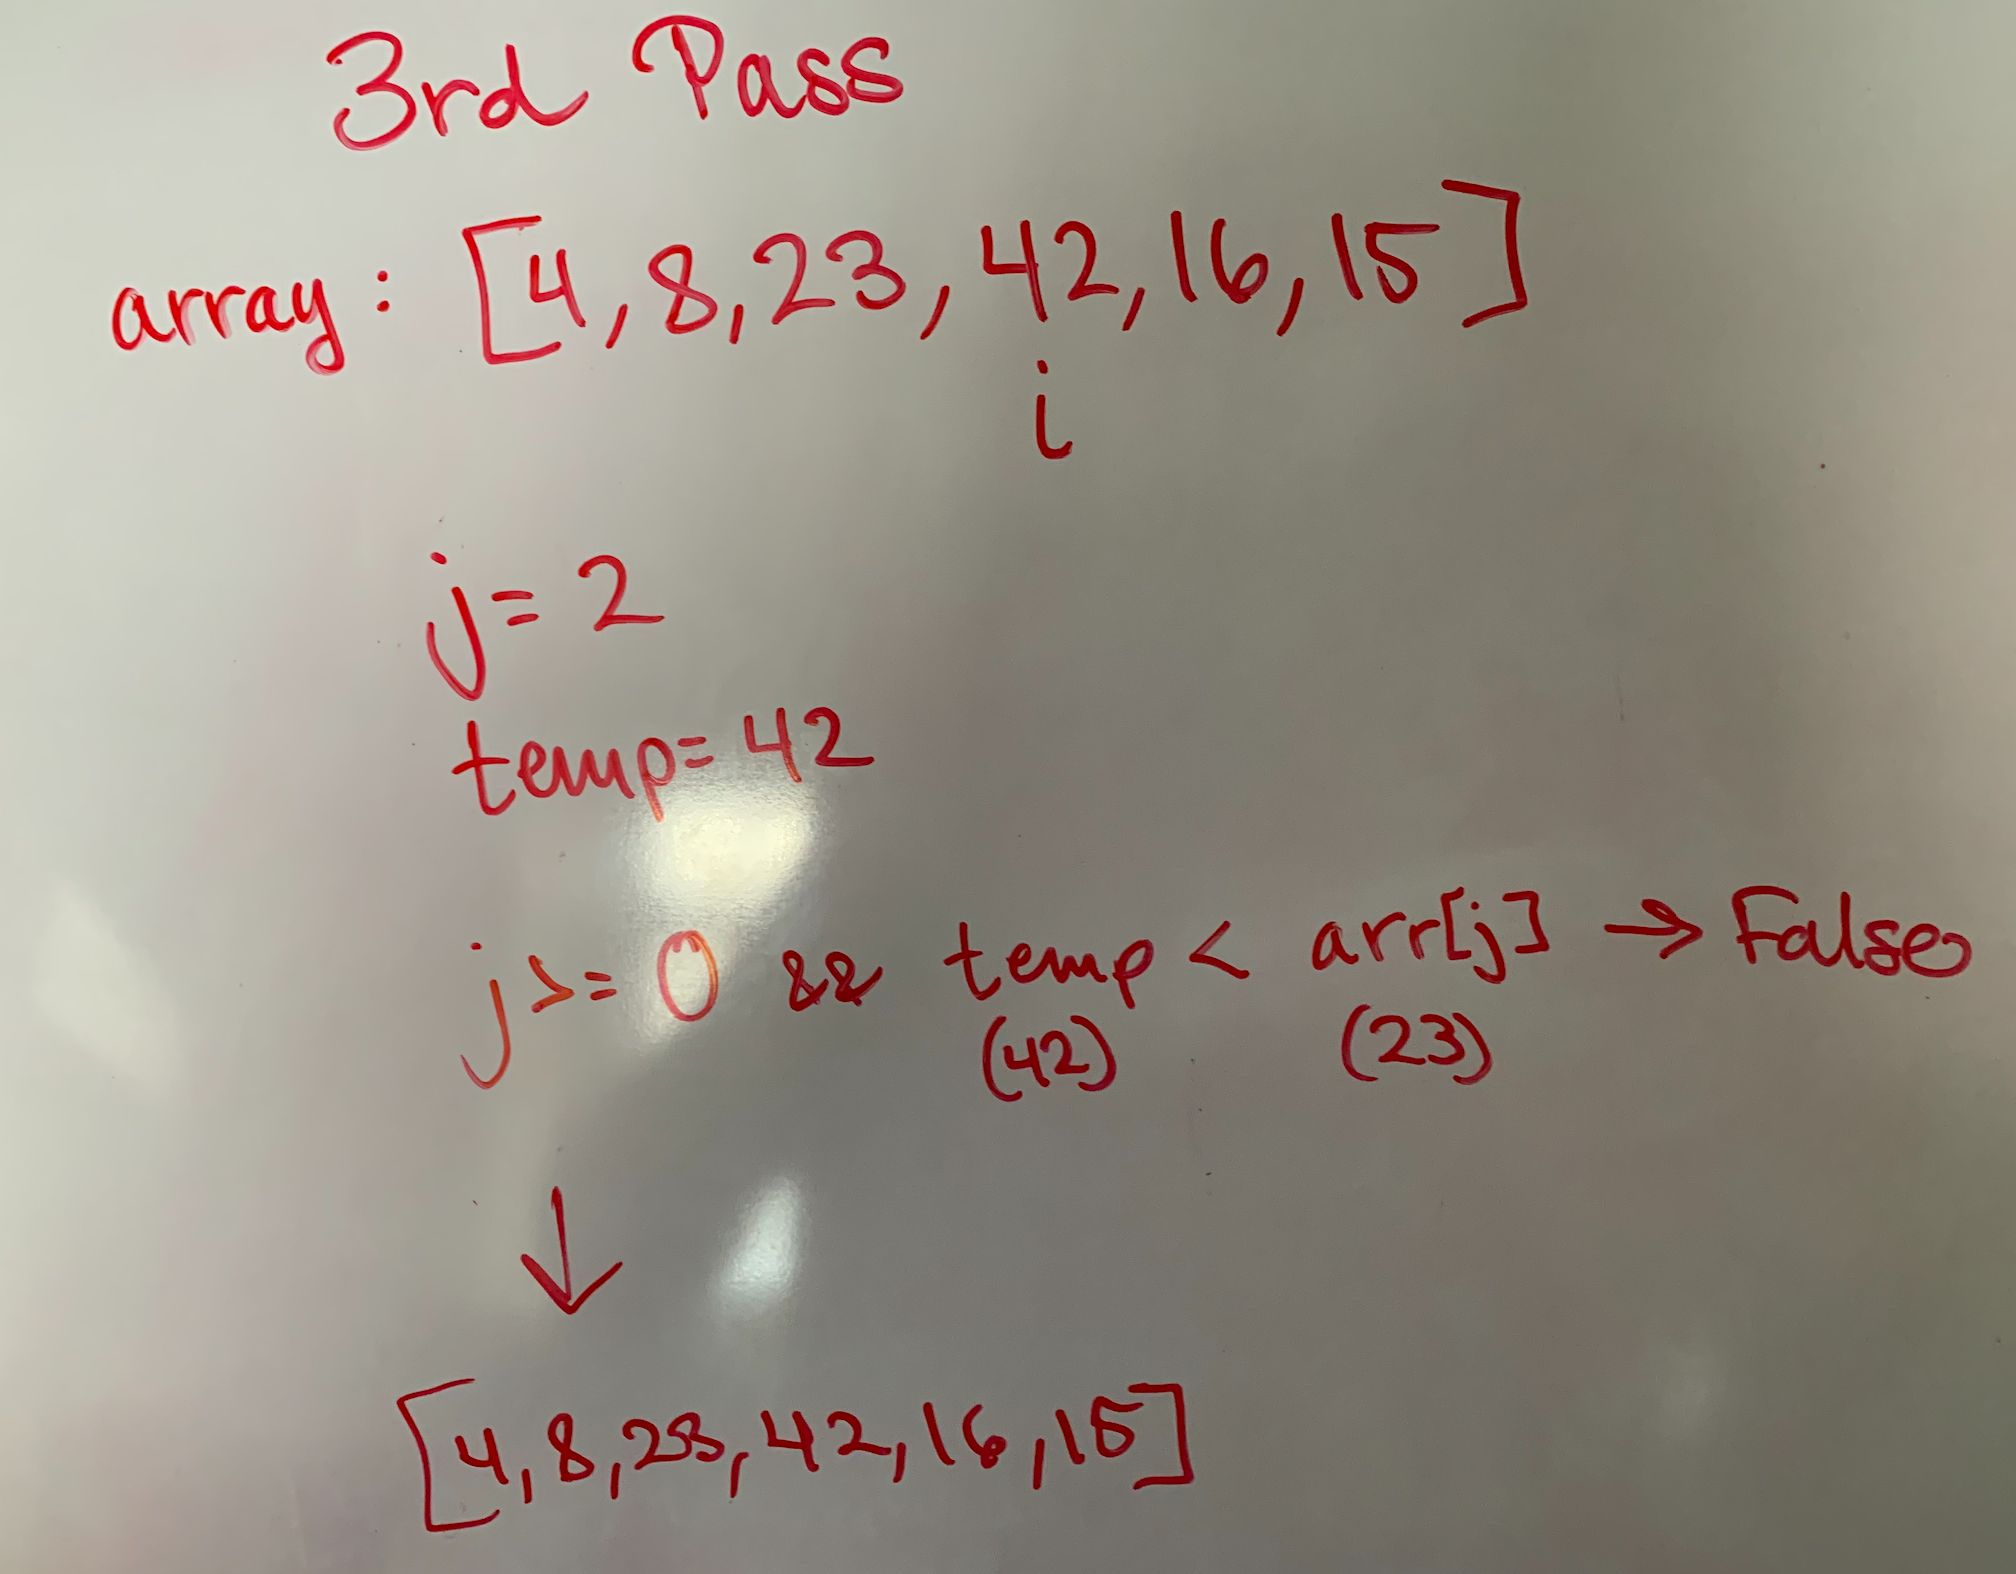 3rd Pass
array: [4,8,23,42,16,15]
i
j= 2
temp= 42
j>= 0 && temp < arr[j] → False
(42) (23)
↓
[4,8,23,42,16,15]